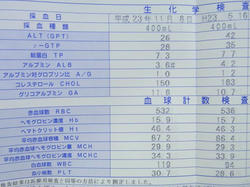 生化学検査
採血日 平成23年11月8日 H23 5.16
採血種類 400mL 400mL
ALT(GPT) 26 42
γ-GTP 35
総蛋白 TP 7.3 7.7
アルブミン ALB 3.6
アルブミン対グロブリン比 A/G 1.0
コレステロール CHOL 150 183
グリコアルブミン GA 11.6
血球計数検査
赤血球数 RBC 532 536
ヘモグロビン濃度 Hb
ヘマトクリット値 Ht 46.4
平均赤血球容積 MCV 87.2 86.4
平均赤血球ヘモグロビン量 MCH 29.9 29.3
平均赤血球ヘモグロビン濃度 MCHC 34.3 33.9
白血球数 WBC 119 94
血小板数 PLT 30.7 28.6